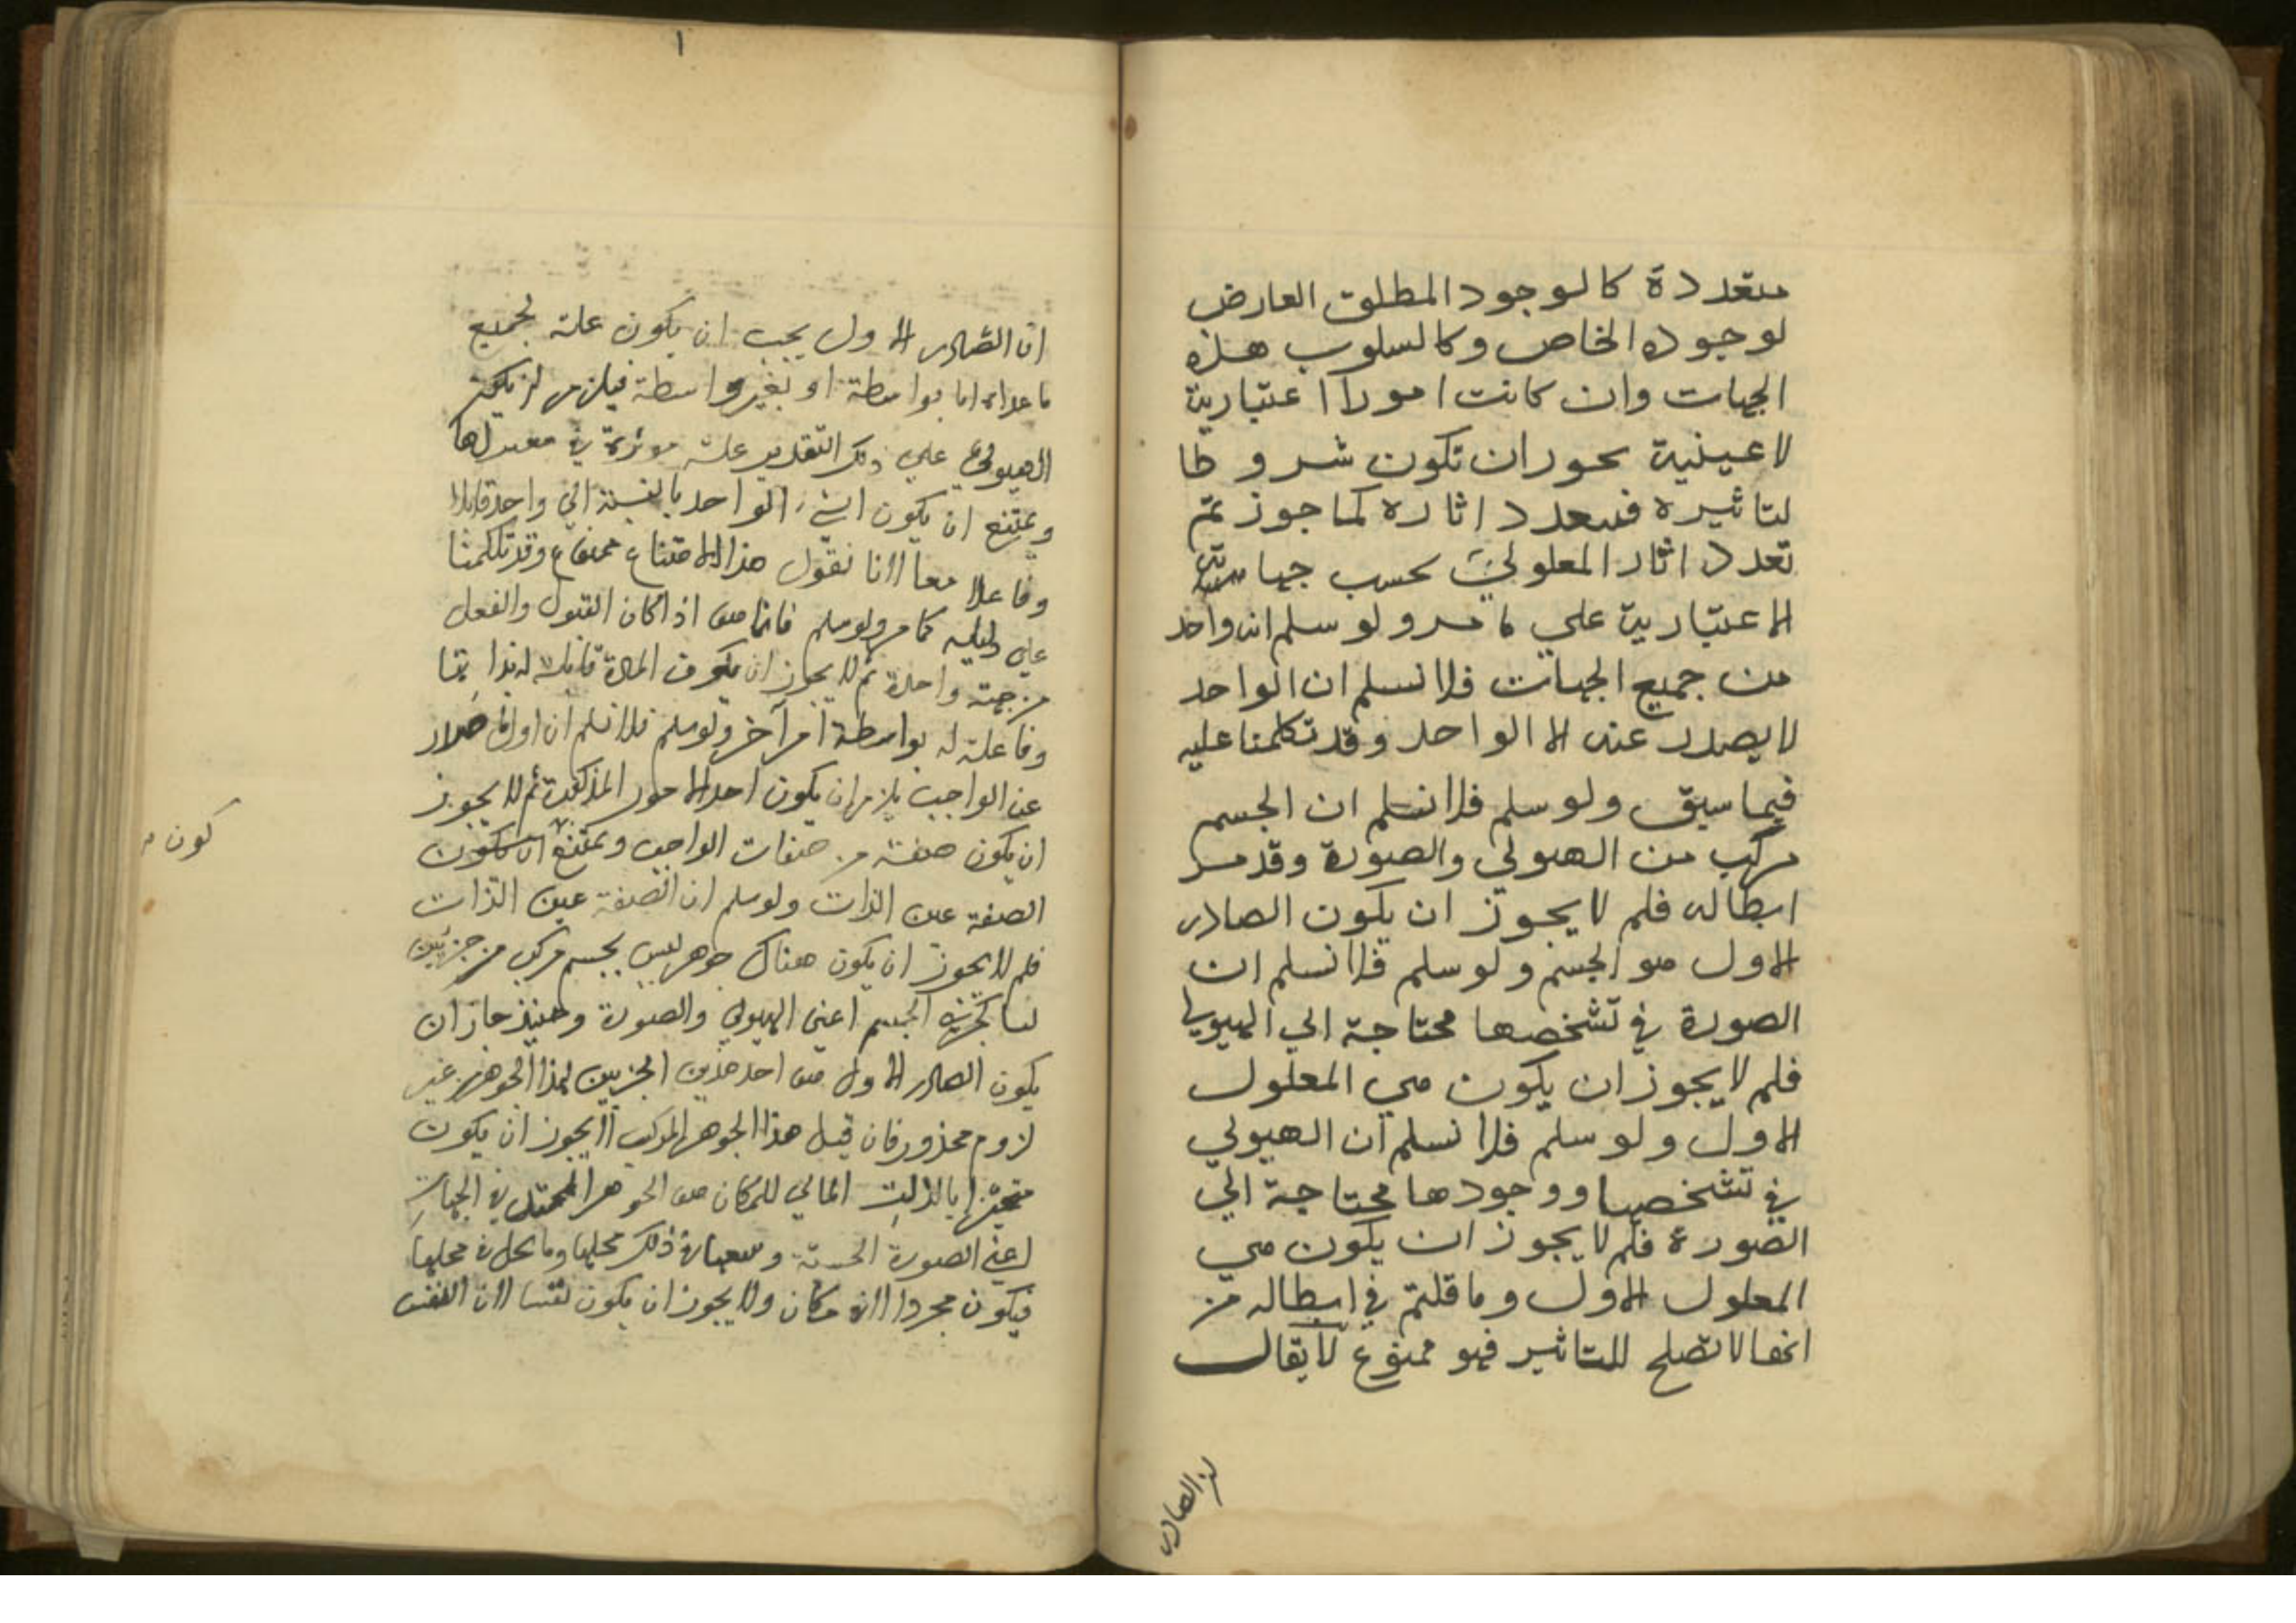 متعددة كالوجود المطلق العارض
لوجوده الخاص وكالسلوب هذه
الجهات وان كانت امورا اعتبارية
لا عينية يجوز ان تكون شروطا
لتاثيره فتتعدد اثاره كما جوزتم
تعدد اثار المعلول بحسب جهاته
الاعتبارية علي ما مر ولو سلم انه واحد
من جميع الجهات فلا نسلم ان الواحد
لا يصدر عنه الا الواحد وقد تكلمنا عليه
فيما سبق ولو سلم فلا نسلم ان الجسم
مركب من الهيولي والصورة وقد مر
ابطاله فلم لا يجوز ان يكون الصادر
الاول هو الجسم ولو سلم فلا نسلم ان
الصورة في تشخصها محتاجة الي الهيولي
فلم لا يجوز ان يكون هي المعلول
الاول ولو سلم فلا نسلم ان الهيولي
في تشخصها ووجودها محتاجة الي
الصورة فلم لا يجوز ان يكون هي
المعلول الاول وما قلتم في ابطاله من
انها لا تصلح للتاثير فهو ممنوع لا يقال
ان الصادر
١
ان الصادر الاول يجب ان يكون علة لجميع
ما عداه اما بواسطة او بغير واسطة فيلزم ان يكون
الهيولي علي ذلك التقدير علة موثرة في
ويمتنع ان يكون الشيء الواحد بالنسبة الي واحد قابلا
وفاعلا معا لانا نقول هذا الامتناع ممنوع وقد تكلمنا
علي دليله كما مر ولو سلم فانما هو اذا كان القبول والفعل
من جهة واحدة لم لا يجوز ان يكون المادة قابلة له بذاتها
وفاعلة له بواسطة امر آخر ولو سلم فلا نسلم ان اول صادر
عن الواجب يلزم ان يكون احد الامور المذكورة لم لا يجوز
ان يكون صفة من صفات الواجب ويمتنع ان يكون
كون
الصفة عين الذات ولو سلم ان الصفة عين الذات
فلم لا يجوز ان يكون هناك جوهر ليس بجسم مركب من جزئين
ليسا كجزئي الجسم اعني الهيولي والصورة وحينئذ جاز ان
يكون الصادر الاول هو احد هذين الجزئين لهذا الجوهر من غير
لزوم محذور فان قيل هذا الجوهر المركب لا يجوز ان يكون
متحيزا بالذات المالي للمكان هو الجوهر الممتد في الجهات
اعني الصورة الجسمية ذلك محلها وما يحل في محلها
فيكون مجردا لا في مكان ولا يجوز ان يكون نفسا لان النفس